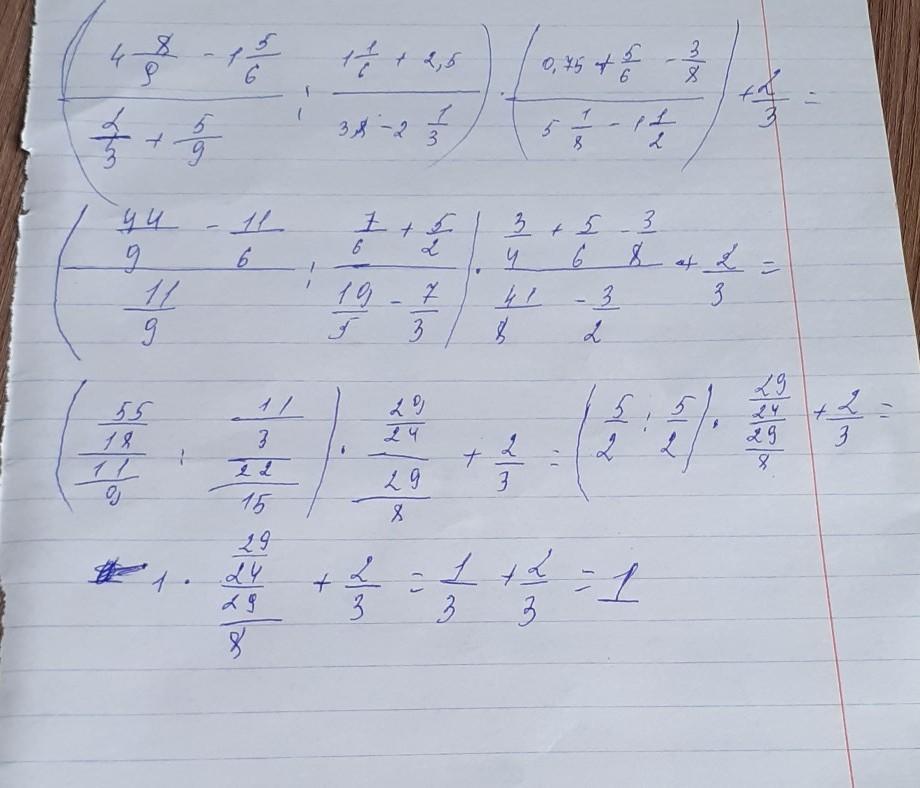 (4 8/9 - 1 5/6 / 2/3 + 5/9 : 1 1/6 + 2,5 / 3,8 - 2 1/3) · (0,75 + 5/6 - 3/8 / 5 1/8 - 1 1/2) + 2/3 =
(44/9 - 11/6 / 11/9 : 7/6 + 5/2 / 19/5 - 7/3) · 3/4 + 5/6 - 3/8 / 41/8 - 3/2 + 2/3 =
(55/18 / 11/9 : 11/3 / 22/15) · 29/24 / 29/8 + 2/3 = (5/2 : 5/2) · 29/24 / 29/8 + 2/3 =
1 · 29/24 / 29/8 + 2/3 = 1/3 + 2/3 = 1